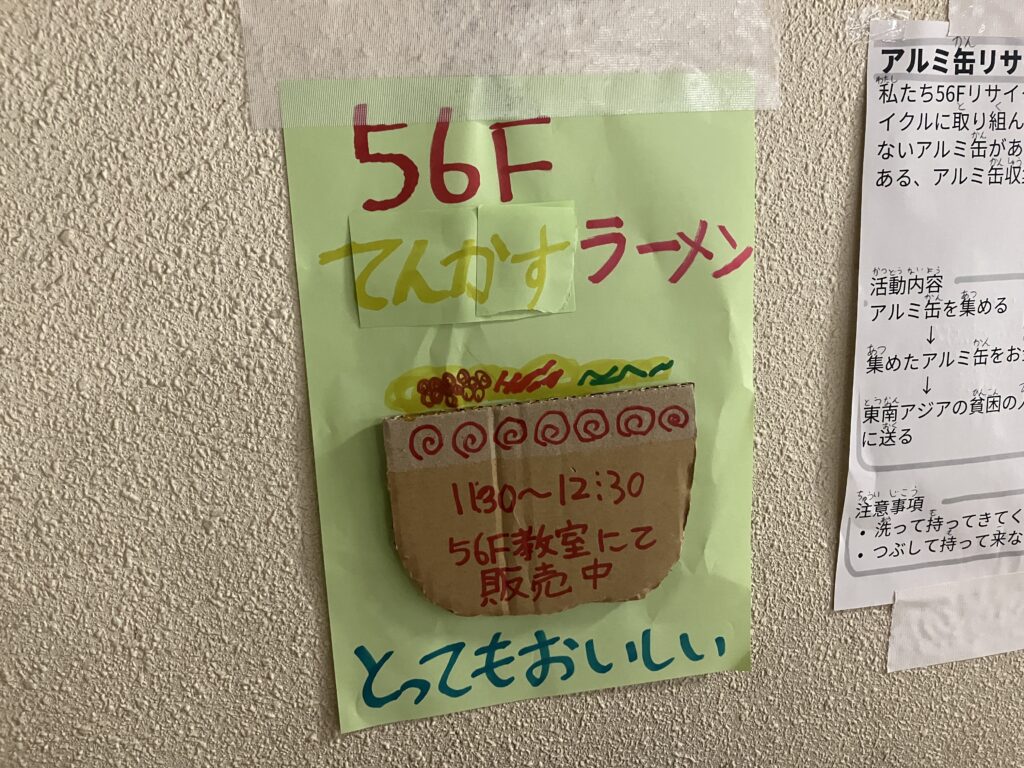 56F
てんかすラーメン
11:30～12:30
56F教室にて
販売中
とってもおいしい
アルミ缶リサ
私たち56Fリサイ
イクルに取り組ん
ないアルミ缶があ
ある、アルミ缶収
活動内容
アルミ缶を集める
↓
集めたアルミ缶をお
↓
東南アジアの貧困の
に送る
注意事項
・洗って持ってきてく
・つぶして持って来な